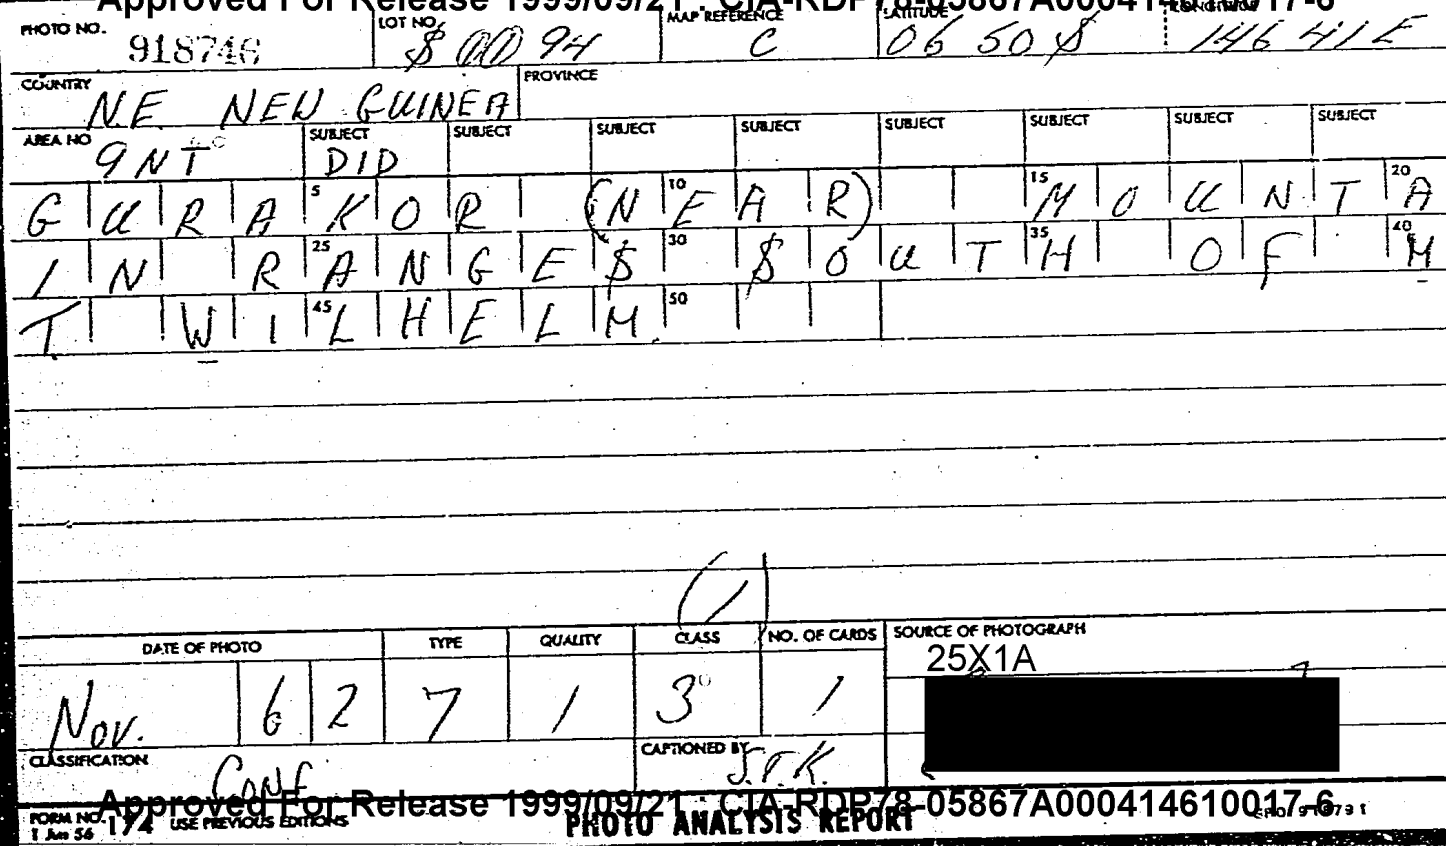 Approved For Release 1999/09/21 : CIA-RDP78-05867A000414610017-6
PHOTO NO. 918746 LOT NO. $ 00 94 MAP REFERENCE C LATITUDE 06 50 $ LONGITUDE 146 41 E
COUNTRY N.E. NEW GUINEA PROVINCE
AREA NO 9NT SUBJECT DID SUBJECT SUBJECT SUBJECT SUBJECT SUBJECT SUBJECT SUBJECT
GURA 5 KOR (N 10 EAR) 15 MOUNT 20 A
IN R 25 ANGE$ 30 $OUT 35 H OF 40 M
T WI 45 LHELM. 50
(1)
DATE OF PHOTO TYPE QUALITY CLASS NO. OF CARDS SOURCE OF PHOTOGRAPH
25X1A
Nov. 6 2 7 1 3 1
CLASSIFICATION CONF CAPTIONED BY J.T.K.
Approved For Release 1999/09/21 : CIA-RDP78-05867A000414610017-6
FORM NO. 174 USE PREVIOUS EDITIONS PHOTO ANALYSIS REPORT
1 Jun 56